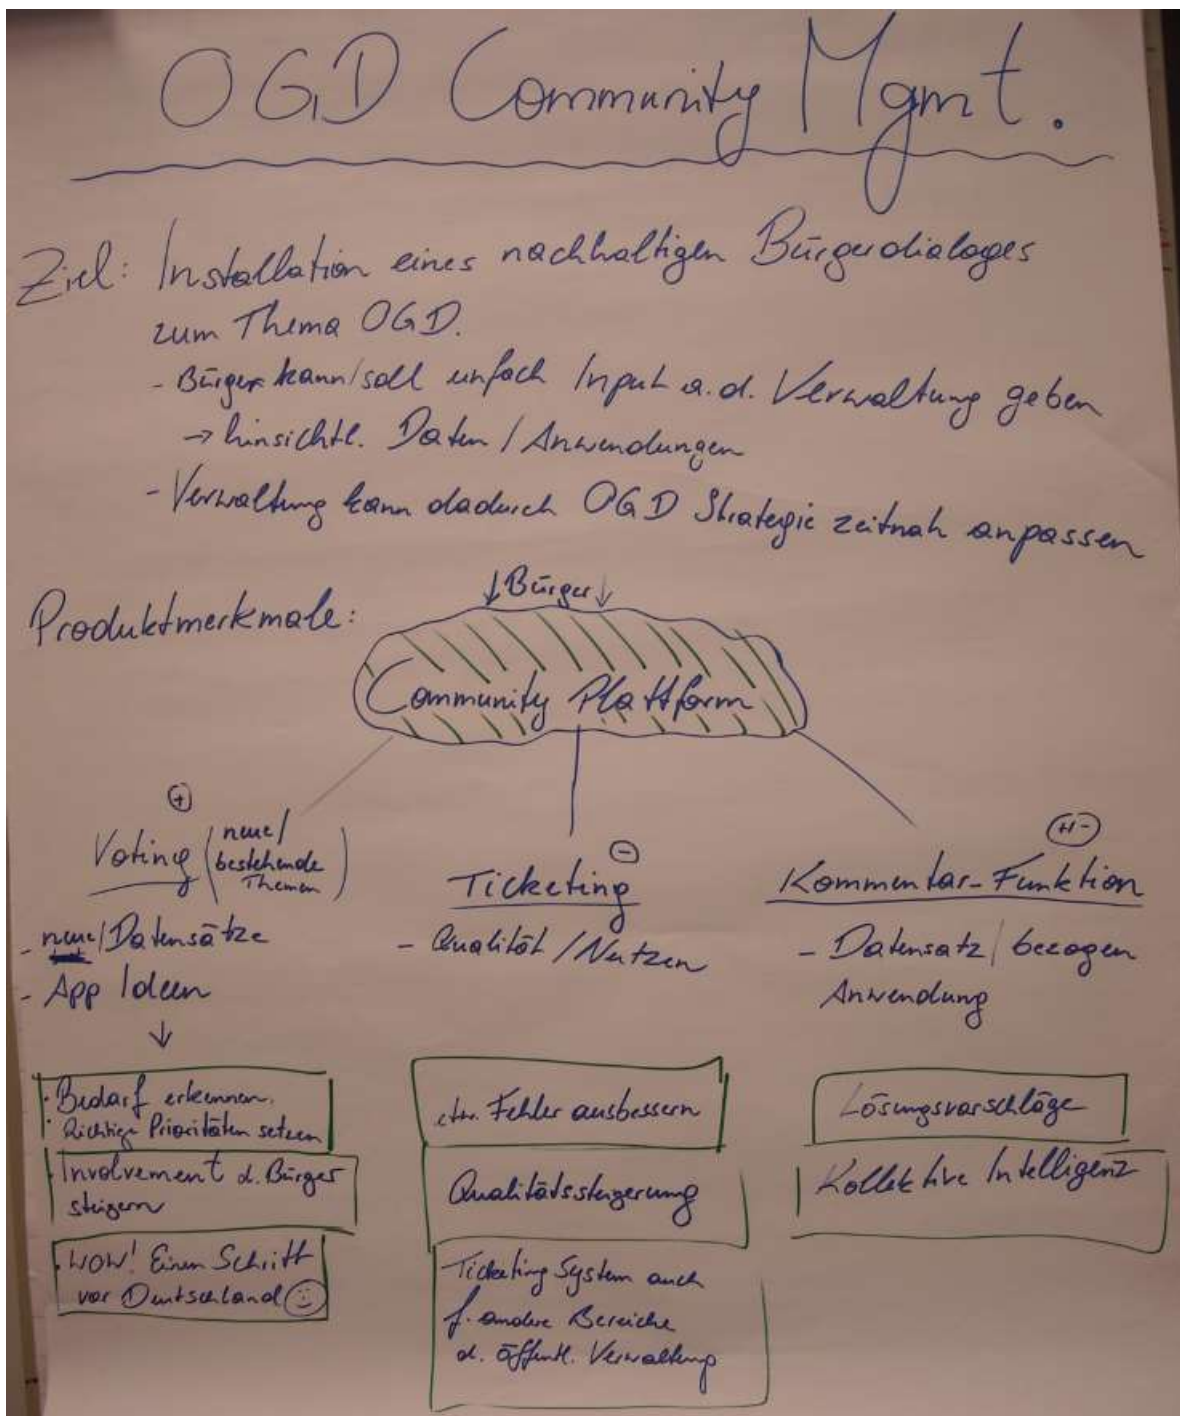 OGD Community Mgmt.
Ziel: Installation eines nachhaltigen Bürgerdialoges
zum Thema OGD.
- Bürger kann/soll einfach Input a.d. Verwaltung geben
→ hinsichtl. Daten / Anwendungen
- Verwaltung kann dadurch OGD Strategie zeitnah anpassen
Produktmerkmale:
↓Bürger↓
Community Plattform
+
Voting (neue/
bestehende
Themen)
- neue/Datensätze
- App Ideen
↓
· Bedarf erkennen.
· Richtige Prioritäten setzen
· Involvement d. Bürger
steigern
· WOW! Einen Schritt
vor Deutschland ☺
-
Ticketing
- Qualität/Nutzen
Fehler ausbessern
Qualitätssteigerung
Ticketing System auch
f. andere Bereiche
d. öffentl. Verwaltung
+/-
Kommentar-Funktion
- Datensatz/bezogen
Anwendung
Lösungsvorschläge
Kollektive Intelligenz